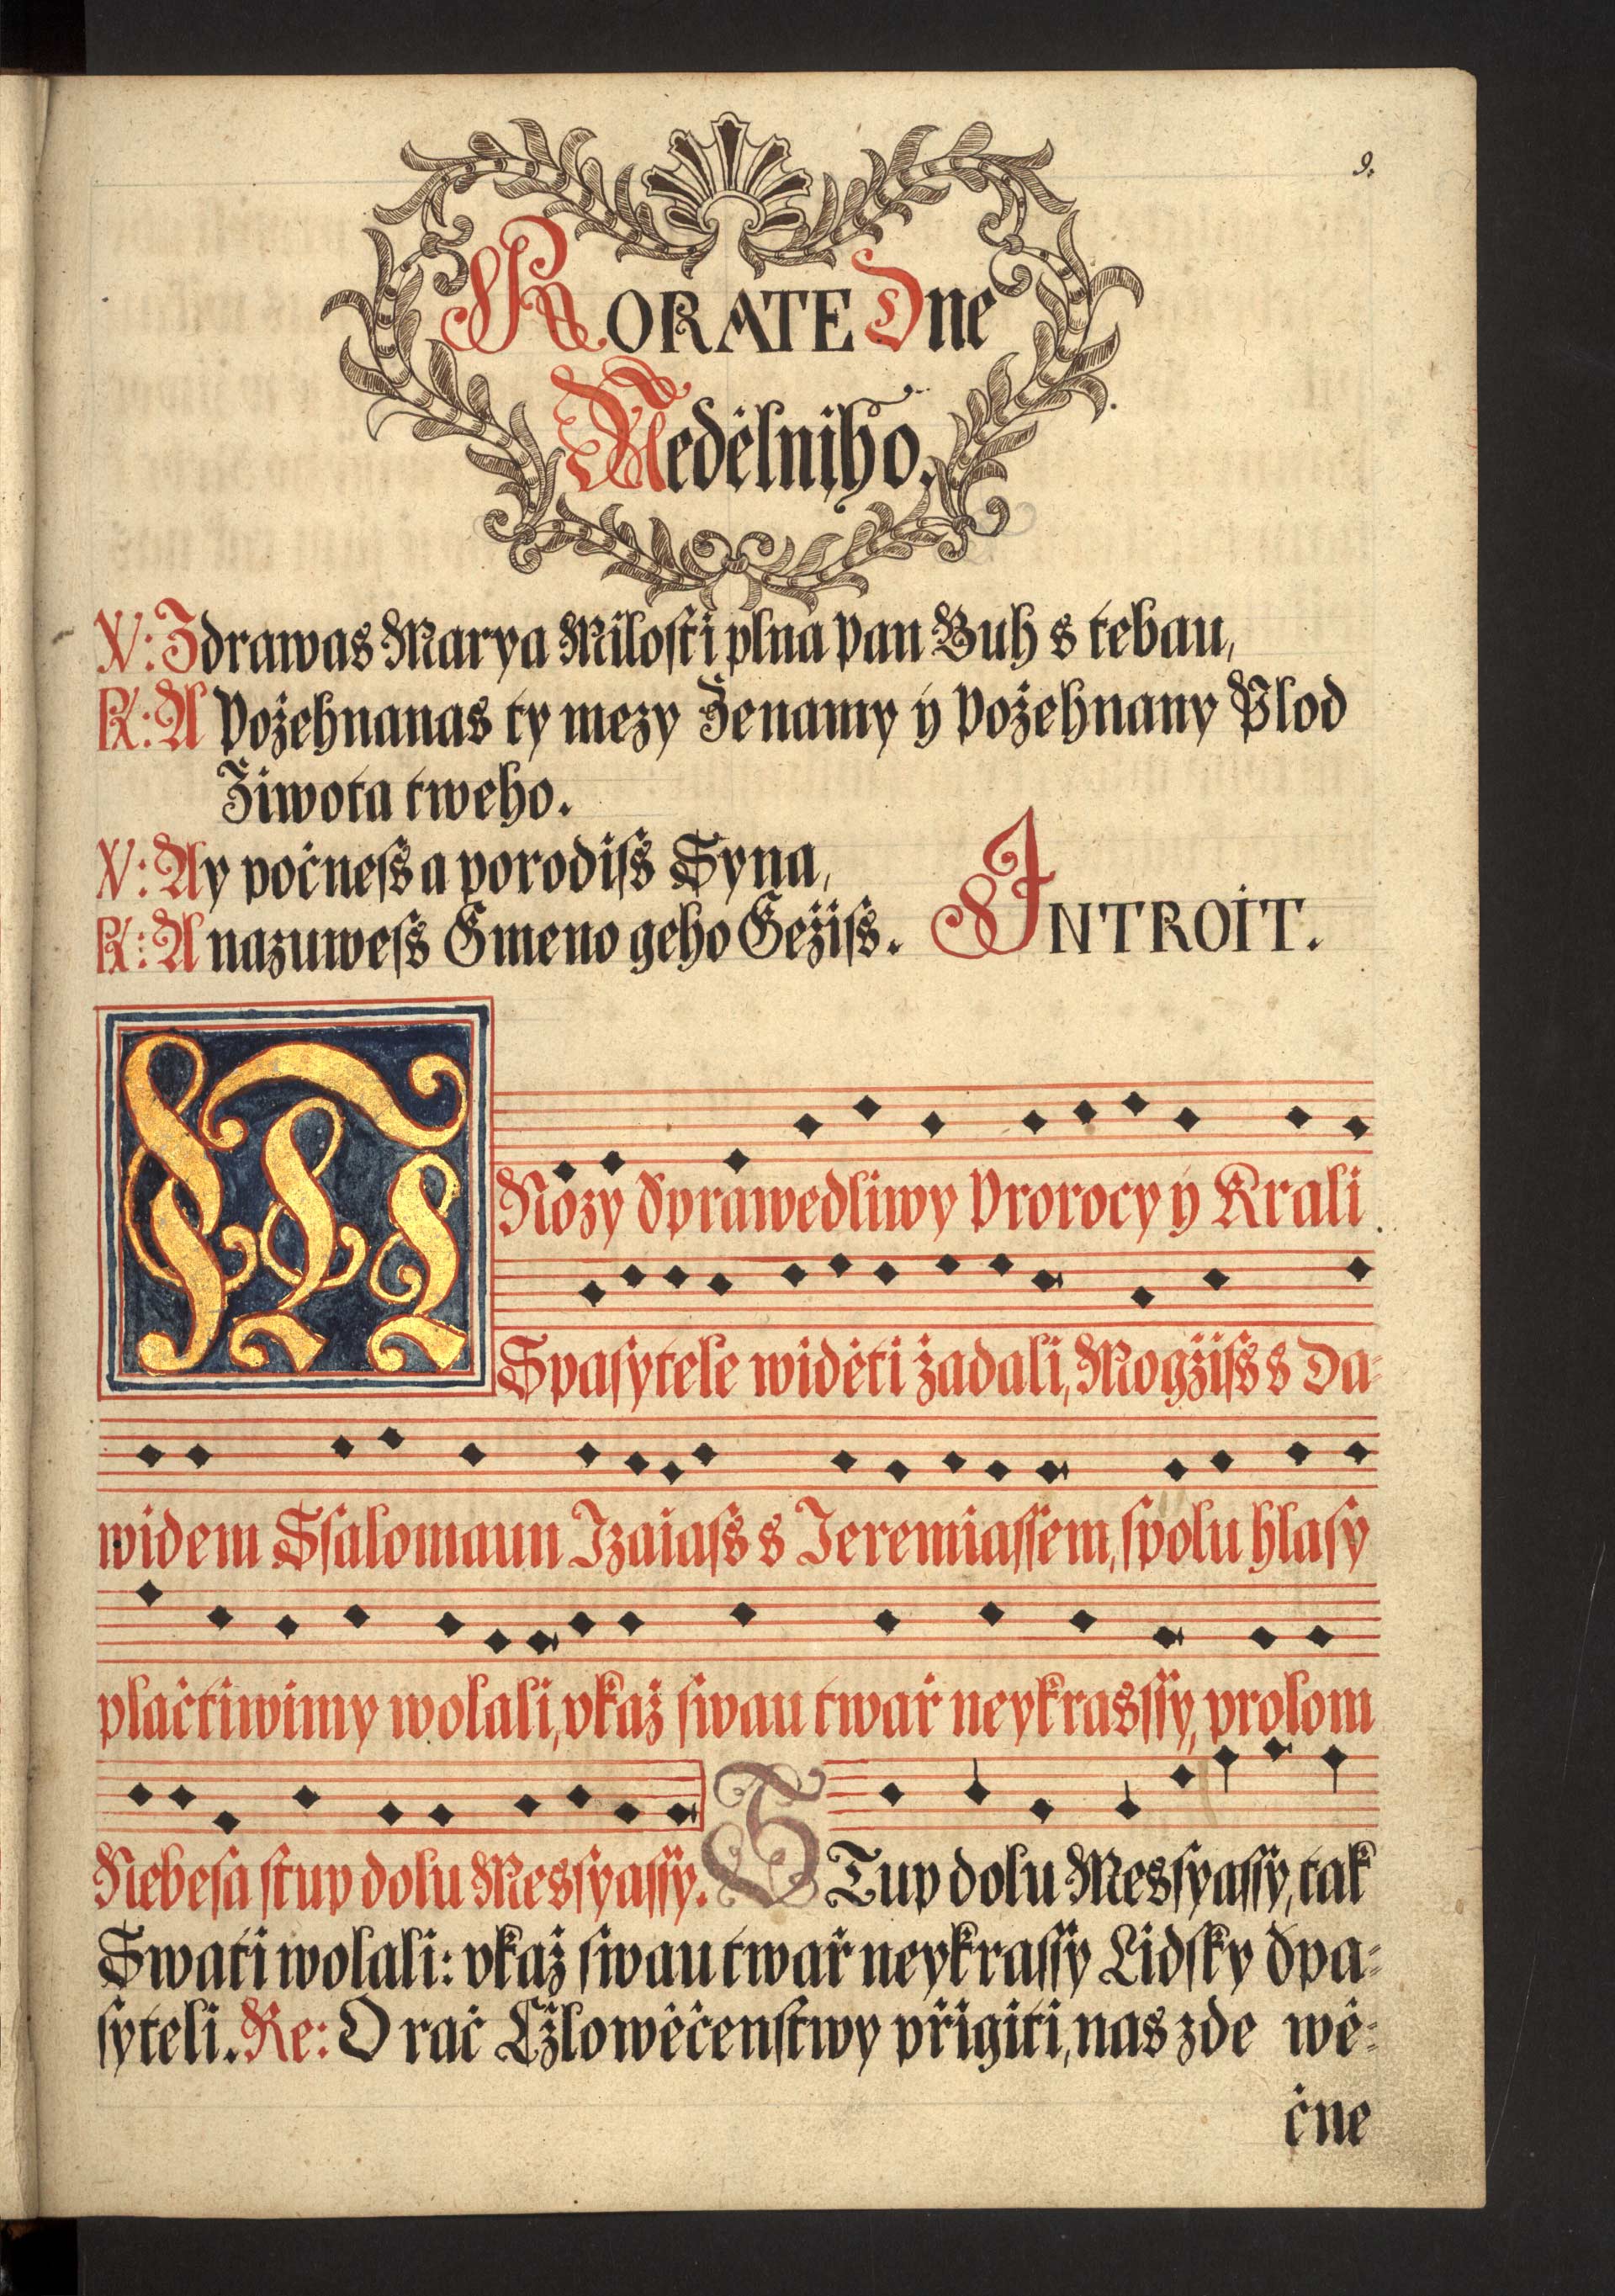 9.
RORATE Dne
Nedělniho.
V: Zdrawas Marya Milosti plna Pan Buh s tebau,
R: A Požehnanas ty mezy Ženamy ẏ Požehnany Plod
Žiwota tweho.
V: Ay počneſs a porodiſs Syna,
R: A nazuweſs Gmeno geho Gežiſs. INTROIT.
MNozy Sprawedliwy Prorocy ẏ Krali
Spaſytele widěti žadali, Mogžiſs s Da-
widem Sſalomaun Izaiaſs s Jeremiaſſem, ſpolu hlaſy
plačtiwimy wolali, vkaž ſwau twař neykrasſſy, prolom
Nebeſa ſtup dolu Mesſyaſſy. STup dolu Mesſyaſſy, tak
Swati wolali: vkaž ſwau twař neykraſſy Lidſky Spa-
ſyteli. Re: O rač Cžlowěčenſtwy přigiti, nas zde wě-
čne